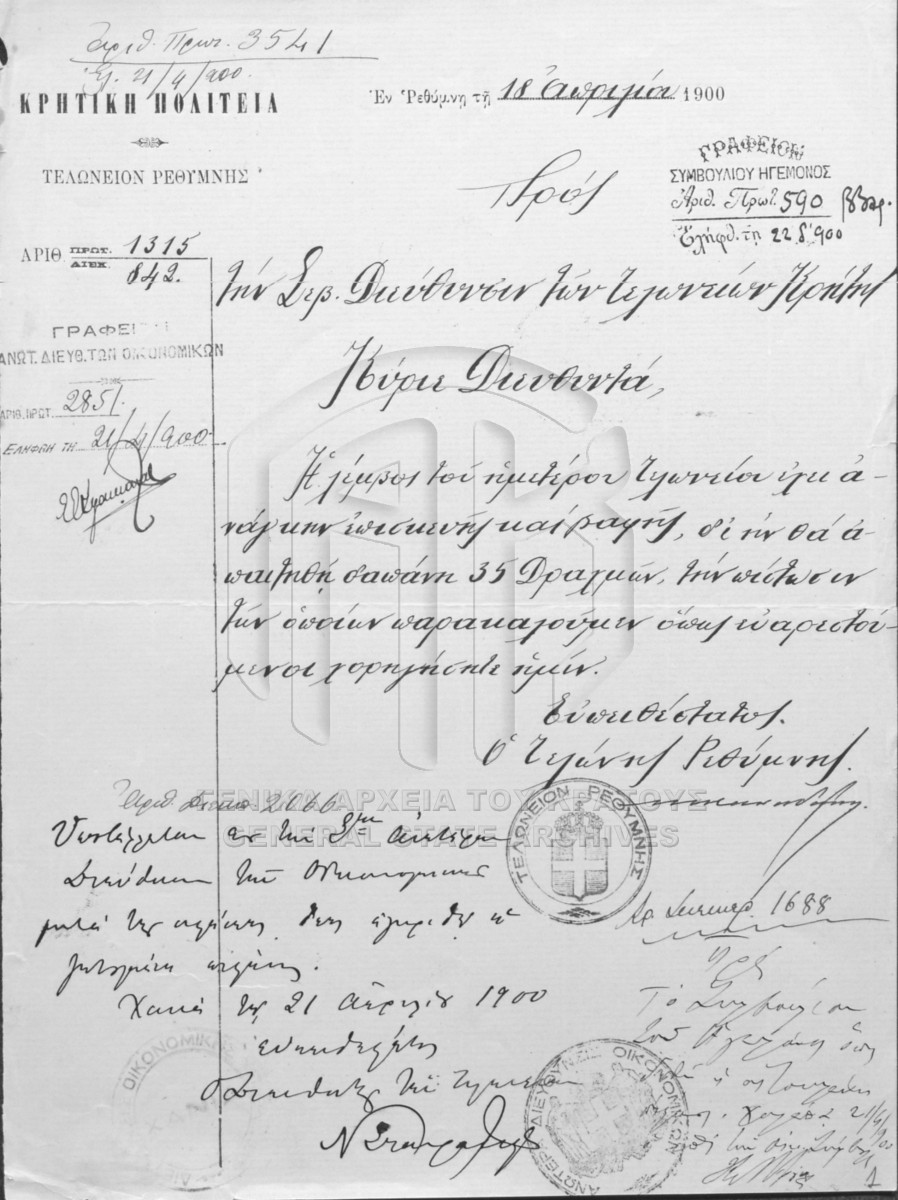 Ἀριθ. Πρωτ. 3541
21/4/900
ΚΡΗΤΙΚΗ ΠΟΛΙΤΕΙΑ
ΤΕΛΩΝΕΙΟΝ ΡΕΘΥΜΝΗΣ
Ἐν Ῥεθύμνῃ τῇ 18 Ἀπριλίου 1900
ΓΡΑΦΕΙΟΝ
ΣΥΜΒΟΥΛΙΟΥ ΗΓΕΜΟΝΟΣ
Ἀριθ. Πρωτ. 590
Ἐλήφθ. τῃ 22 δ' 900
Πρός
ΑΡΙΘ ΠΡΩΤ. 1315
ΔΙΕΚ. 842.
τὴν Σεβ. Διεύθυνσιν τῶν τελωνείων Κρήτης
ΓΡΑΦΕΙΟΝ
ΑΝΩΤ. ΔΙΕΥΘ. ΤΩΝ ΟΙΚΟΝΟΜΙΚΩΝ
ΑΡΙΘ. ΠΡΩΤ. 2851
ΕΛΗΦΘΗ ΤΗ 21/4/900
Κύριε Διευθυντά,
Ἡ λέμβος τοῦ ἡμετέρου τελωνείου ἔχει ἀ-
νάγκην ἐπισκευῆς καὶ βαφῆς, δι' ἣν θὰ ἀ-
παιτηθῇ δαπάνη 35 Δραχμῶν, τὴν πίστωσιν
τῶν ὁποίων παρακαλοῦμεν ὅπως εὐαρεστού-
μενοι χορηγήσητε ἡμῖν.
Εὐπειθέστατος.
Ὁ Τελώνης Ρεθύμνης.
ΤΕΛΩΝΕΙΟΝ ΡΕΘΥΜΝΗΣ
ΓΕΝΙΚΑ ΑΡΧΕΙΑ ΤΟΥ ΚΡΑΤΟΥΣ
GENERAL STATE ARCHIVES
Ἀριθ. 2066
Ὑποβάλλεται εἰς τὴν Σήν Ἀνωτέραν
Διεύθυνσιν τῶν Οἰκονομικῶν
μετὰ τῆς
Χανιά τῇ 21 Ἀπριλίου 1900
εὐπειθέστατος
Ὁ Διευθυντὴς τῶν Τελωνείων
1688
Πρός
Τὸ Συμβούλιον
τοῦ Ἡγεμόνος
ΑΝΩΤΕΡΑ ΔΙΕΥΘΥΝΣΙΣ ΟΙΚΟΝΟΜΙΚΩΝ
ΟΙΚΟΝΟΜΙΚΩΝ